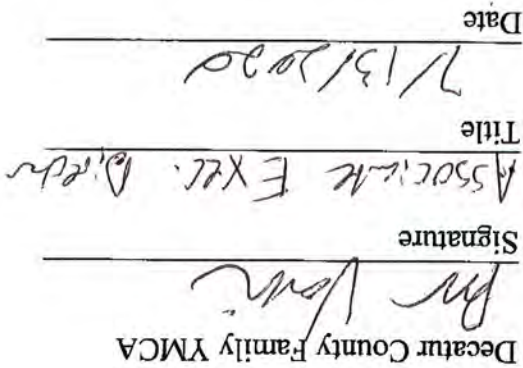 Decatur County Family YMCA
Signature
Associate Exec. Director
Title
7/13/2020
Date